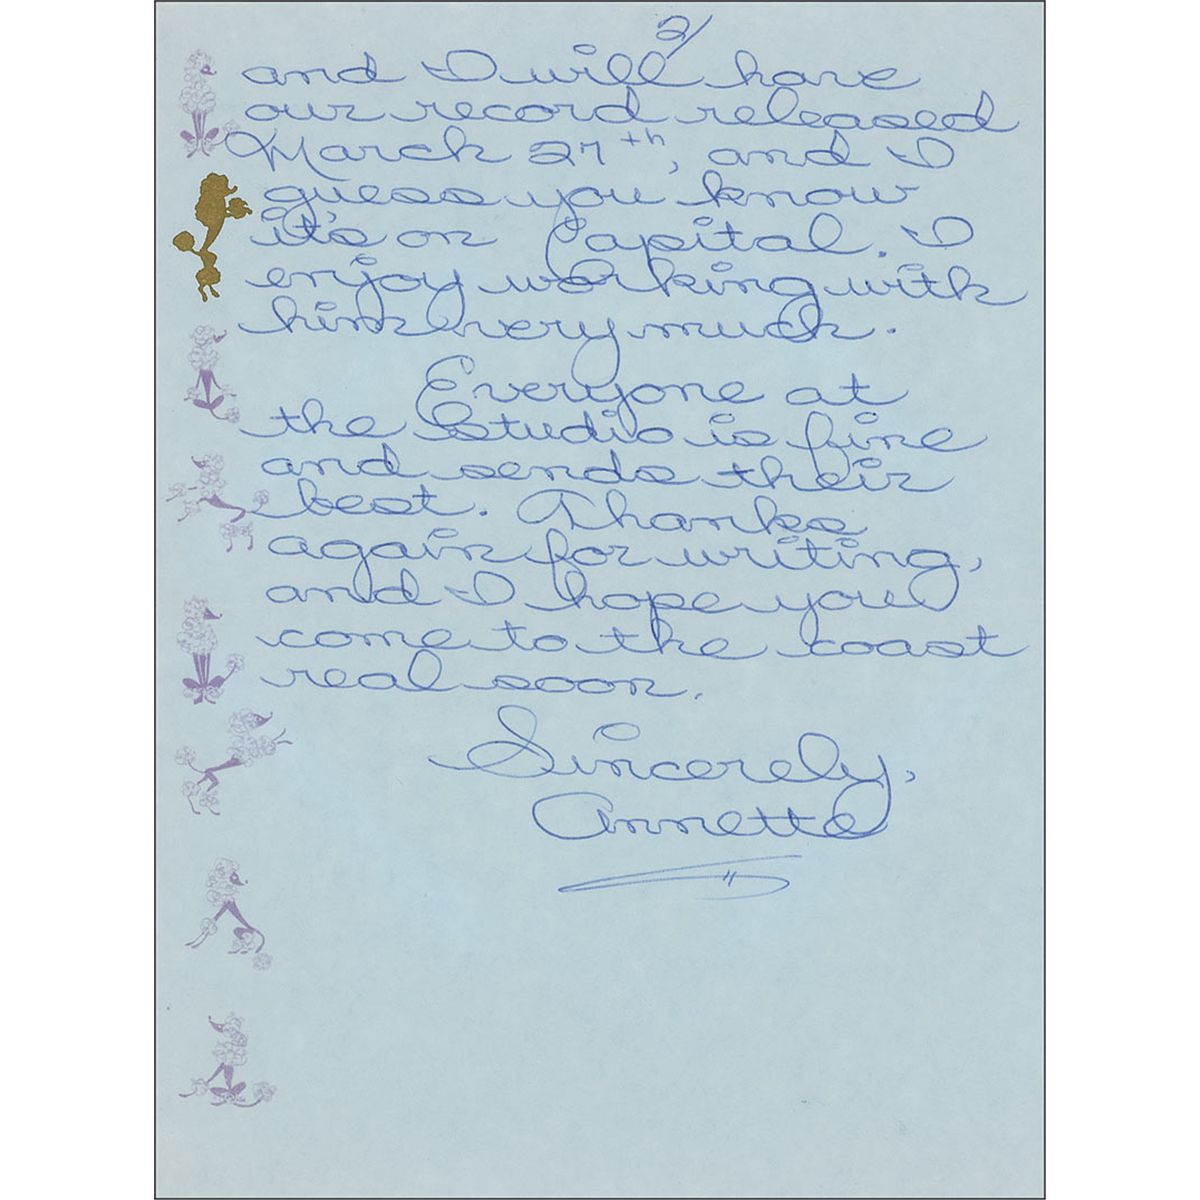 2/
and I will have
our record released
March 27th, and I
guess you know
it's on Capital. I
enjoy working with
him very much.
Everyone at
the Studio is fine
and sends their
best. Thanks
again for writing,
and I hope you
come to the coast
real soon.
Sincerely,
Annette